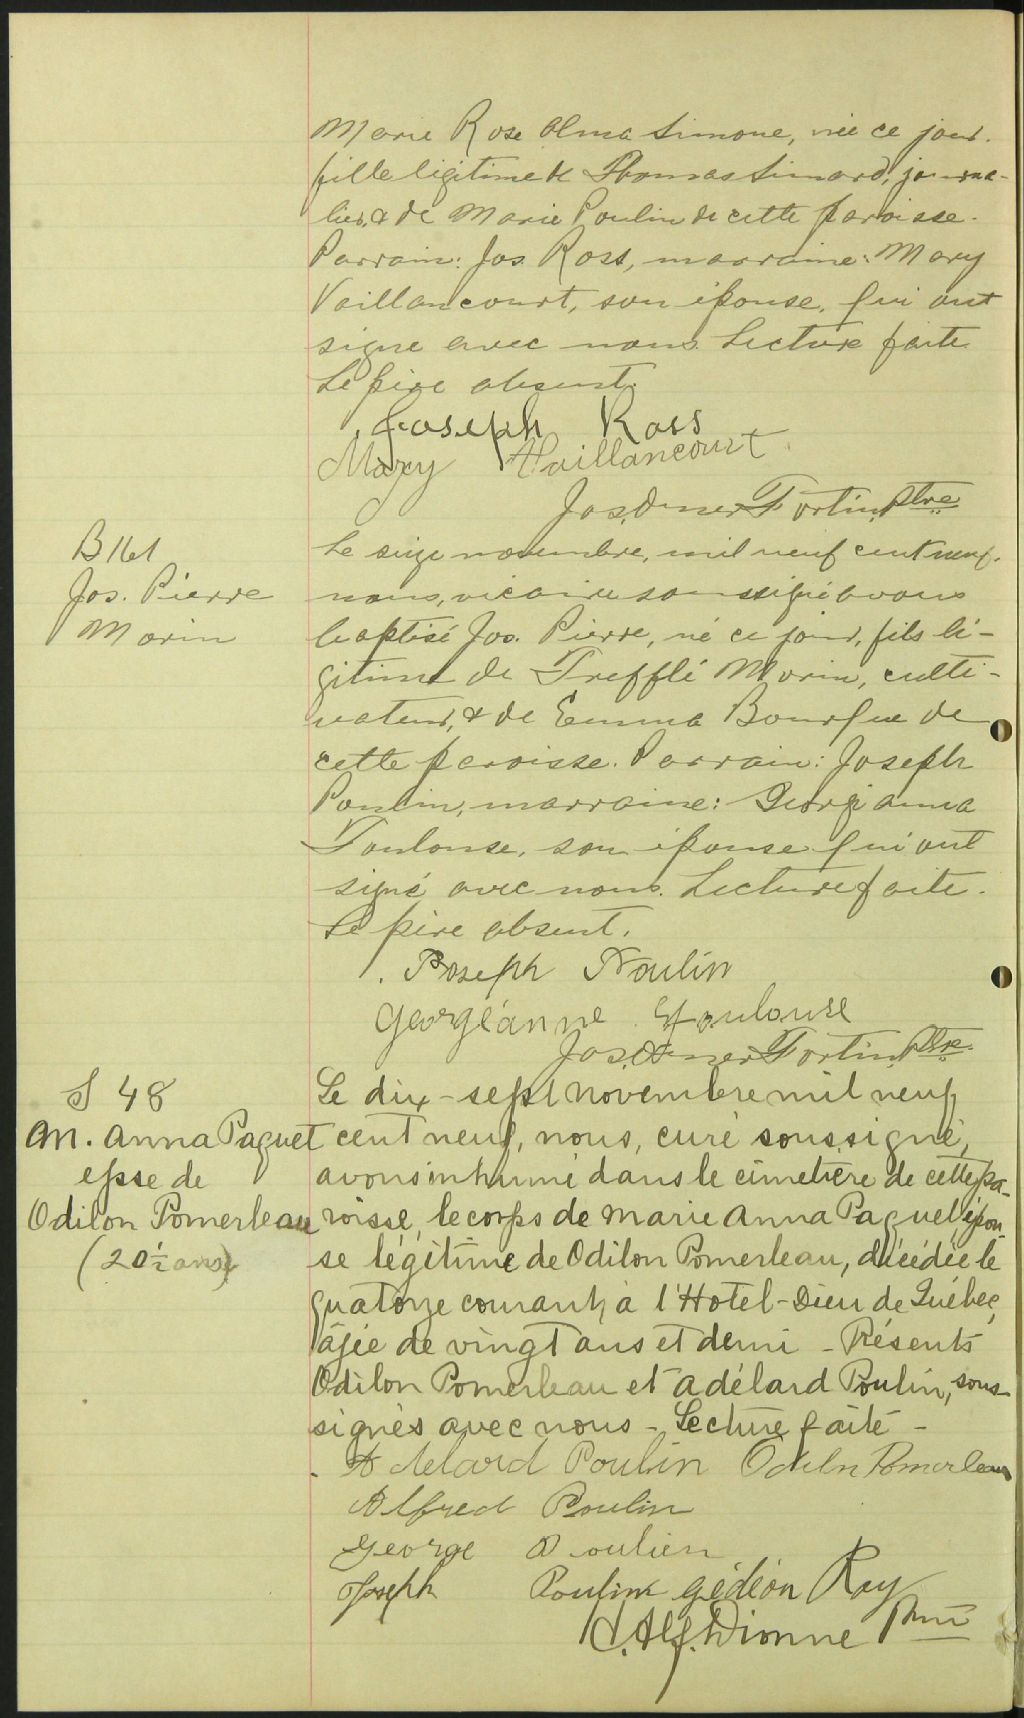 Marie Rose Alma Simone, née ce jour.
fille légitime de Thomas Simard, journa-
lier, & de Marie Poulin de cette paroisse.
Parrain: Jos. Ross, marraine: Mary
Vaillancourt, son épouse, qui ont
signé avec nous. Lecture faite.
Le père absent.
Joseph Ross
Mary Vaillancourt
Jos. Omer Fortin, Ptre
B 161
Jos. Pierre
Morin
Le seize novembre, mil neuf cent neuf,
nous, vicaire soussigné avons
baptisé Jos. Pierre, né ce jour, fils lé-
gitime de Trefflé Morin, culti-
vateur, & de Emma Bourque de
cette paroisse. Parrain: Joseph
Poulin, marraine: Georgianna
Toulouse, son épouse qui ont
signé avec nous. Lecture faite.
Le père absent.
Joseph Poulin
Georgéanne Toulouse
Jos. Omer Fortin, Ptre.
S 48
M. Anna Paquet
epse de
Odilon Pomerleau
(20 1/2 ans)
Le dix-sept novembre mil neuf
cent neuf, nous, curé soussigné,
avons inhumé dans le cimetière de cette pa-
roisse, le corps de Marie Anna Paquet, épou-
se légitime de Odilon Pomerleau, décédée le
quatorze courant, à l'Hotel-Dieu de Québec,
âgée de vingt ans et demi - Présents
Odilon Pomerleau et Adélard Poulin, sous-
signés avec nous - Lecture faite -
Adelard Poulin Odilon Pomerleau
Alfred Poulin
George Poulien
Joseph Poulin Gédéon Roy
J. Alf. Dionne Ptre